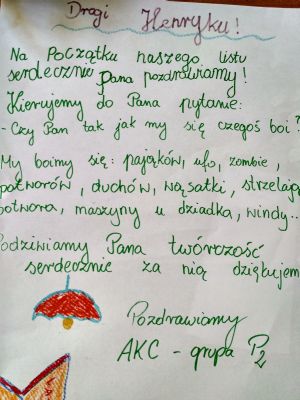 Drogi Henryku!
Na początku naszego listu
serdecznie Pana pozdrawiamy!
Kierujemy do Pana pytanie:
- Czy Pan tak jak my się czegoś boi?
My boimy się: pająków, ufo, zombie,
potworów, duchów, wąsatki, strzelają
potwora, maszyny u dziadka, windy...
Podziwiamy Pana twórczość
serdecznie za nią dziękujem
Pozdrawiamy
AKC - grupa P2